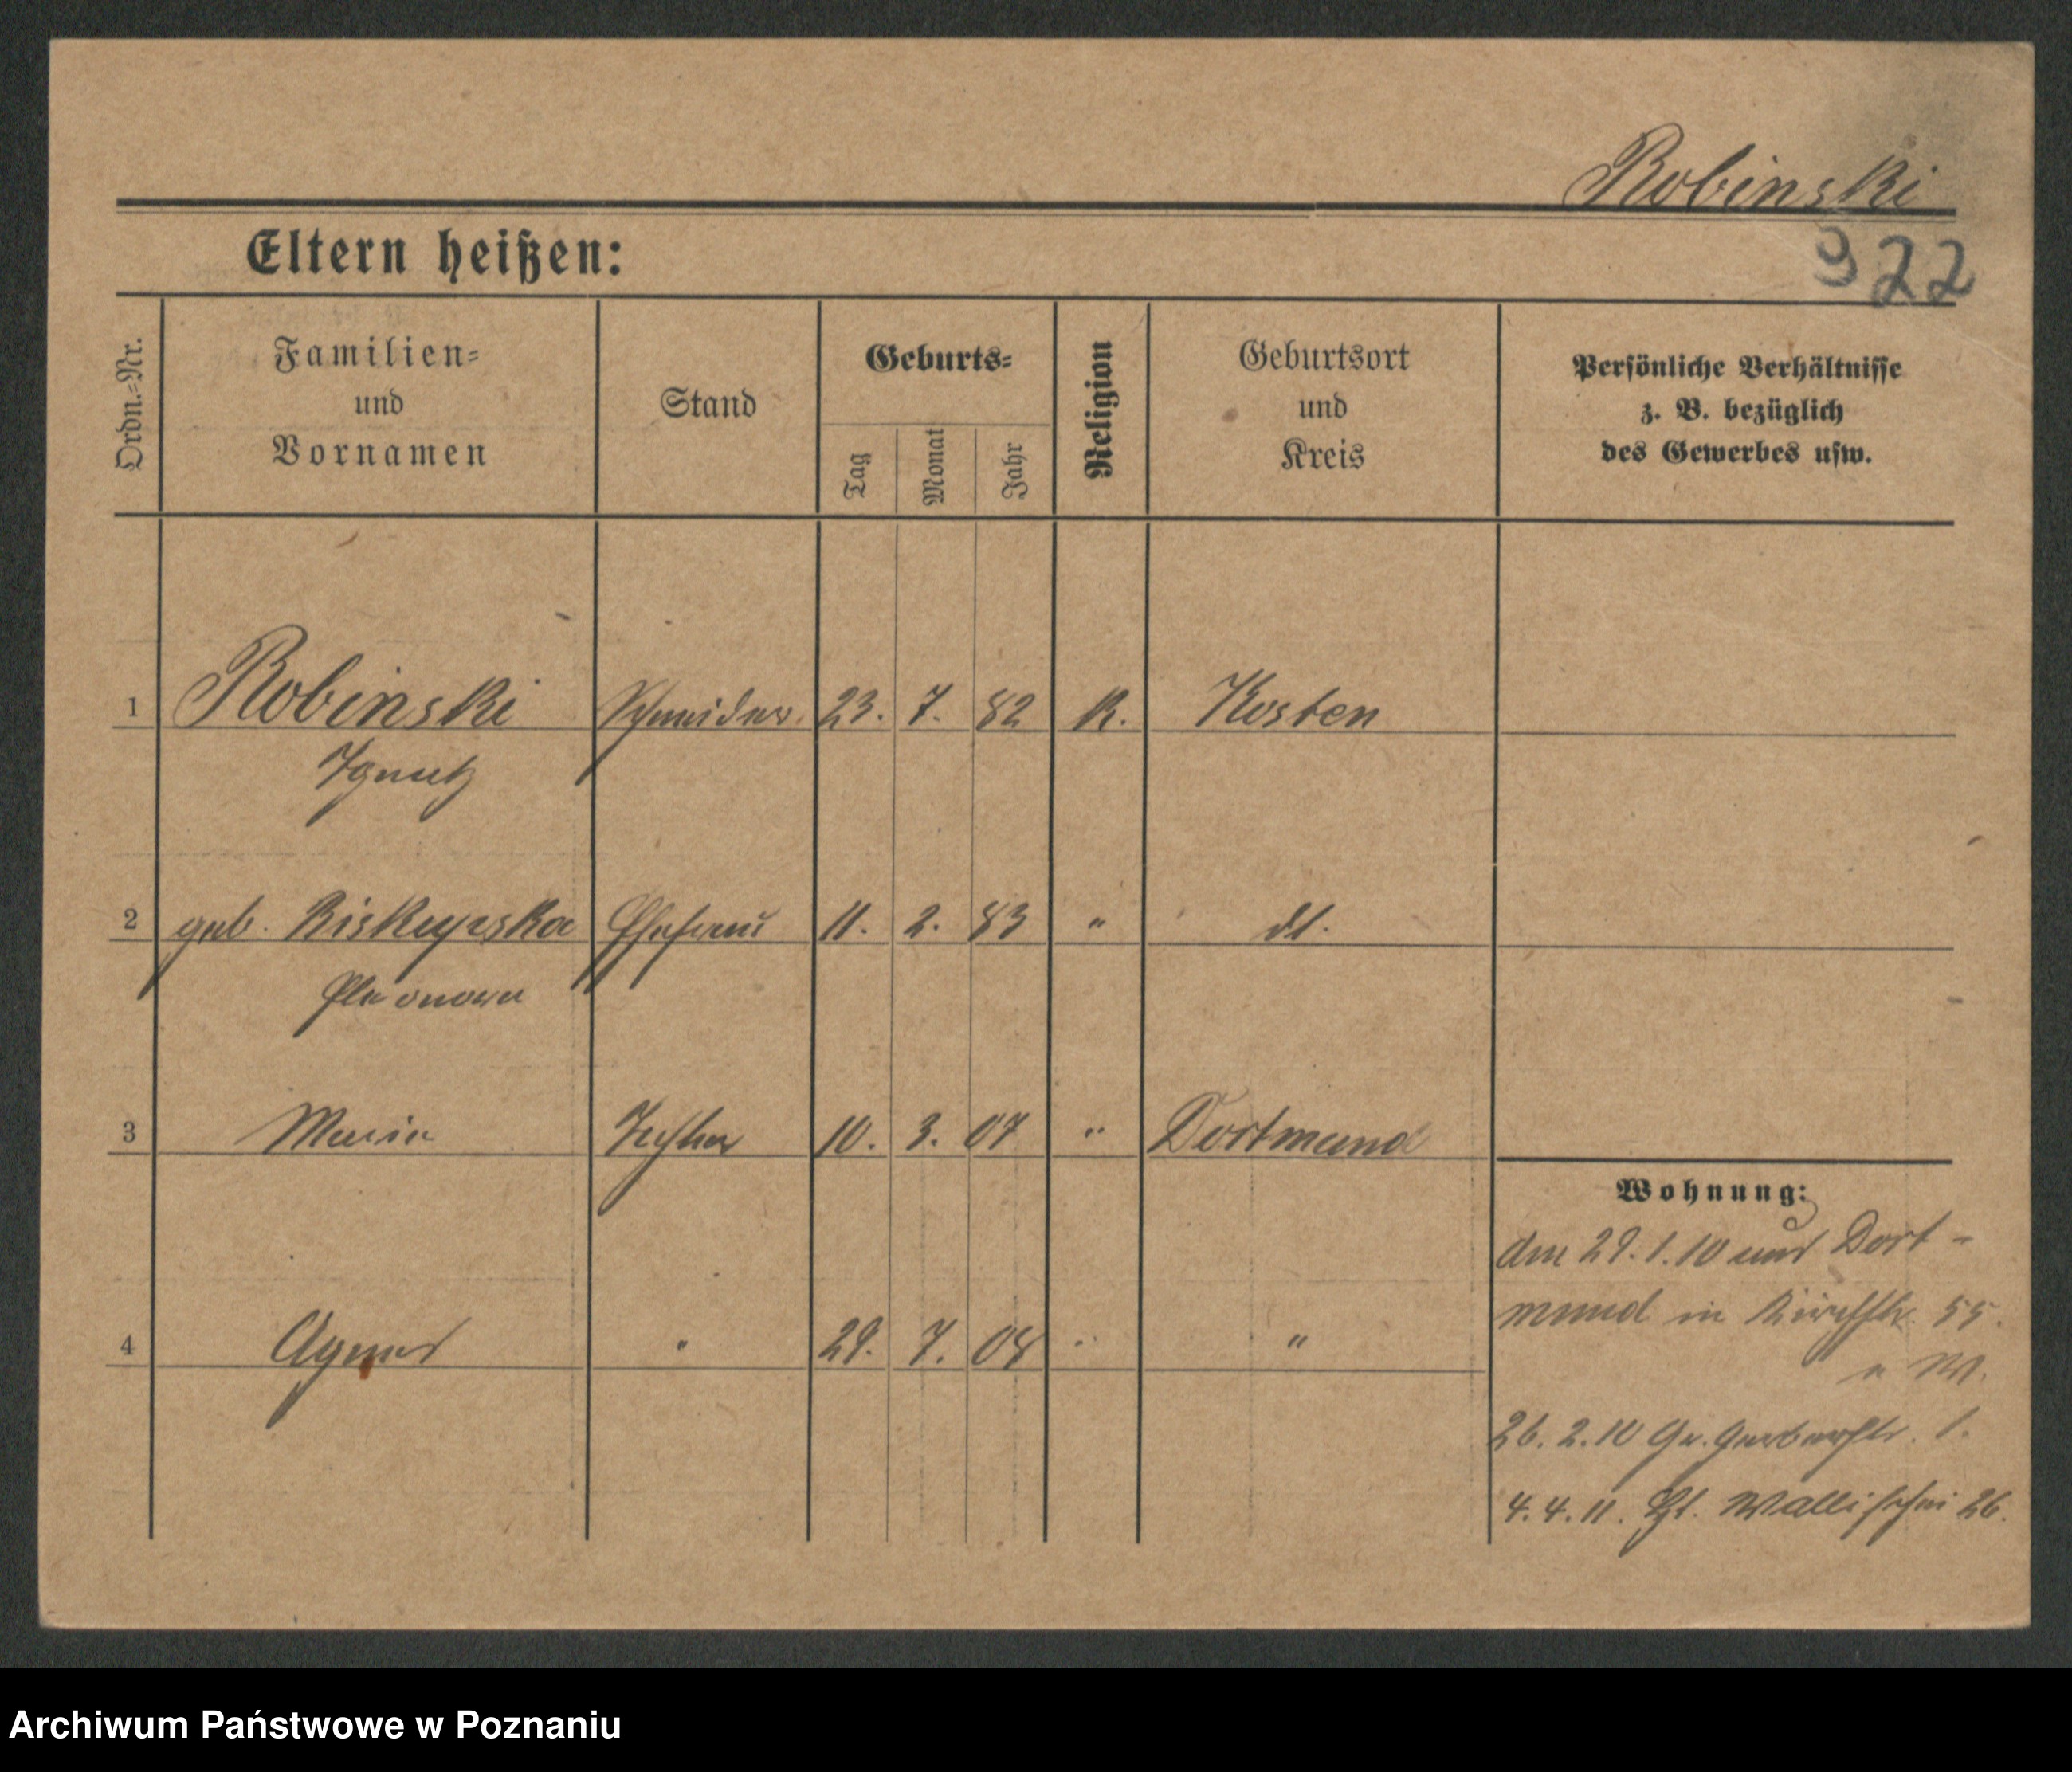 Robinski
922
Eltern heißen:
Ordn.-Nr.
Familien-
und
Vornamen
Stand
Geburts-
Tag
Monat
Jahr
Religion
Geburtsort
und
Kreis
Persönliche Verhältnisse
z. B. bezüglich
des Gewerbes usw.
1 Robinski Schneider 23. 7. 82 K. Kosten
Ignatz
2 geb. Ehefrau 11. 2. 83 " dt.
Eleonora
3 Maria Tochter 10. 3. 07 " Dortmund
Wohnung:
4 Agnes " 29. 7. 08 " "
den 29. 1. 10 aus Dort-
mund in 55.
26. 2. 10 Gr. Gerberstr. 1.
4. 4. 11. Wallischei 26.
Archiwum Państwowe w Poznaniu